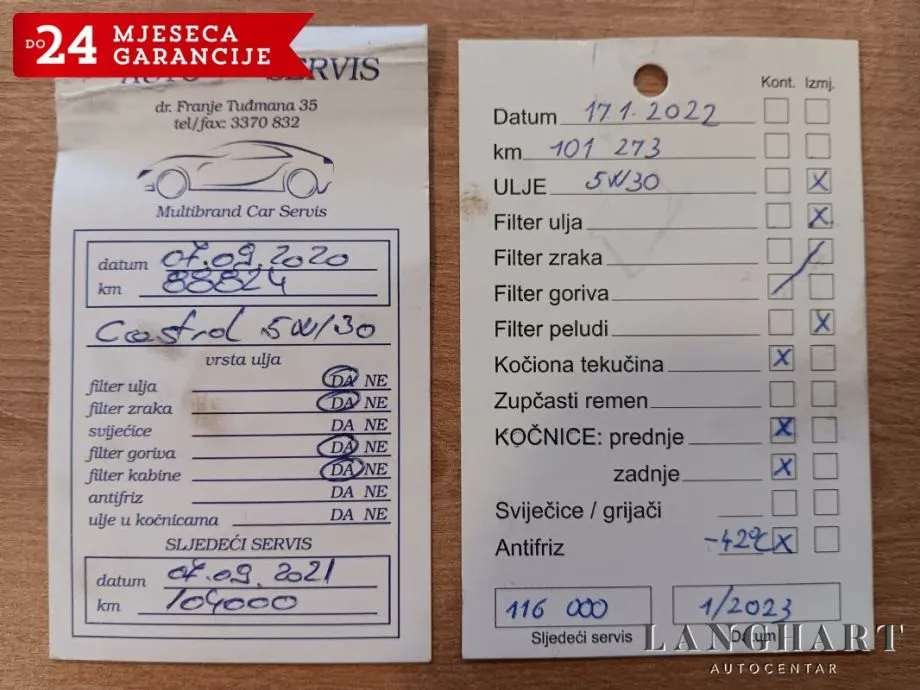 DO 24 MJESECA GARANCIJE
AUTO SERVIS
dr. Franje Tuđmana 35
tel/fax: 3370 832
Multibrand Car Servis
datum 07.09.2020
km 88824
Castrol 5W/30
vrsta ulja
filter ulja DA NE
filter zraka DA NE
svijećice DA NE
filter goriva DA NE
filter kabine DA NE
antifriz DA NE
ulje u kočnicama DA NE
SLJEDEĆI SERVIS
datum 07.09.2021
km 104000
Kont. Izmj.
Datum 17.1.2022
km 101 273
ULJE 5W/30 X
Filter ulja X
Filter zraka
Filter goriva
Filter peludi X
Kočiona tekučina X
Zupčasti remen
KOČNICE: prednje X
zadnje X
Sviječice / grijači
Antifriz -42°C X
116 000 1/2023
Sljedeći servis Datum
LANGHART
AUTOCENTAR